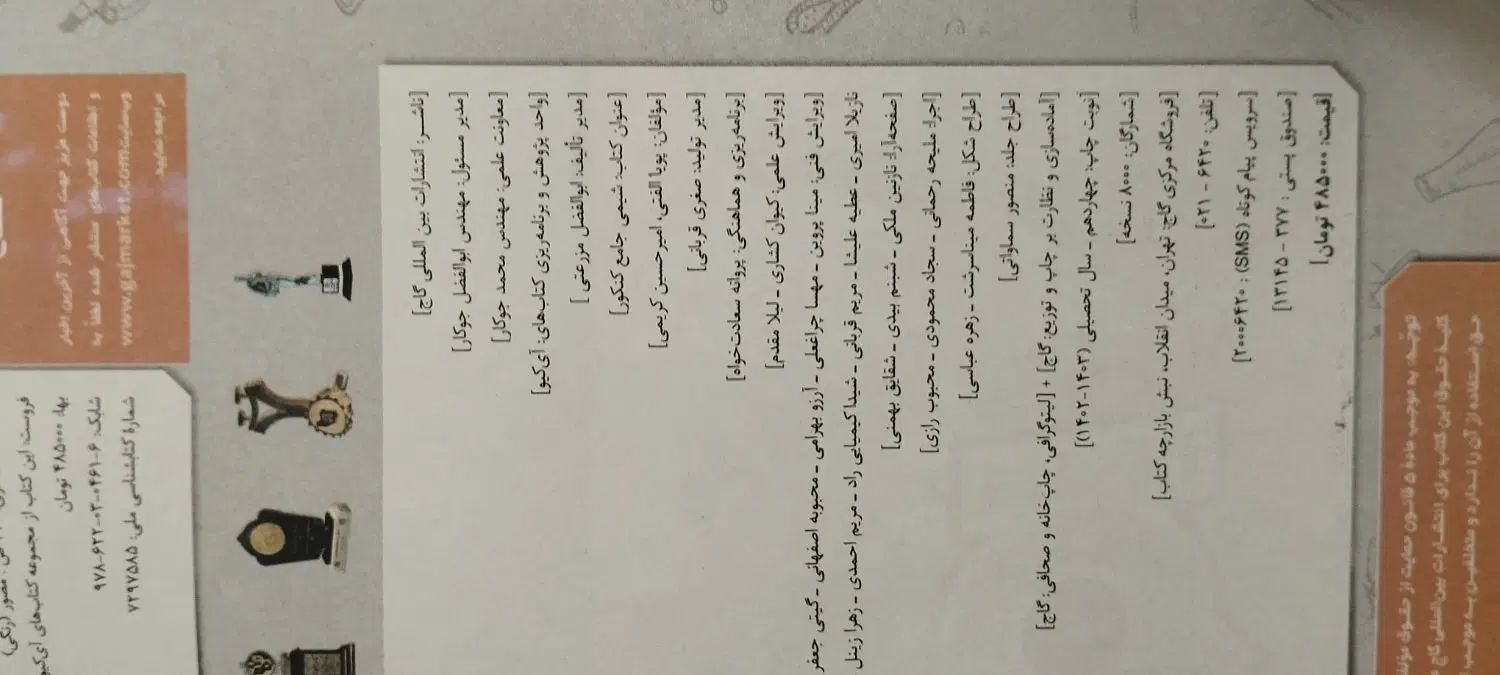 دوست عزیز جهت آگاهی از آخرین اخبار
و اطلاعات کتاب‌های منتشر شده لطفا به
وب‌سایت www.gajmarket.com
مراجعه نمایید.
مصور (رنگی)
فروست: این کتاب از مجموعه کتاب‌های آی‌کیو
بها: ۴۸۵۰۰۰ تومان
شابک: ۶-۰۴۶۱-۰۳-۶۲۲-۹۷۸
شمارهٔ کتابشناسی ملی: ۷۲۹۷۵۸۵
[ناشر: انتشارات بین المللی گاج]
[مدیر مسئول: مهندس ابوالفضل جوکار]
[معاونت علمی: مهندس محمد جوکار]
[واحد پژوهش و برنامه‌ریزی کتاب‌های: آی‌کیو]
[مدیر تألیف: ابوالفضل مزرعتی]
[عنوان کتاب: شیمی جامع کنکور]
[مؤلفان: پویا الفتی، امیرحسین کریمی]
[مدیر تولید: صغری قربانی]
[برنامه‌ریزی و هماهنگی: پروانه سعادت‌خواه]
[ویرایش علمی: کیوان کشاری - لیلا مقدم]
[ویرایش فنی: مینا پروین - مهسا چراغعلی - آرزو بهرامی - محبوبه اصفهانی - گیتی جعفر
نازیلا امیری - عطیه علیشا - مریم قربانی - شیدا کیمیایی راد - مریم احمدی - زهرا زینل
[صفحه‌آرا: نازنین ملکی - شبنم بیدی - شقایق بهمنی]
[اجرا: ملیحه رحمانی - سجاد محمودی - محبوب رازی]
[طراح شکل: فاطمه میناسرشت - زهره عباسی]
[طراح جلد: منصور سماواتی]
[آماده‌سازی و نظارت بر چاپ و توزیع: گاج] + [لیتوگرافی، چاپ‌خانه و صحافی: گاج]
[نوبت چاپ: چهاردهم - سال تحصیلی (۱۴۰۳-۱۴۰۲)]
[شمارگان: ۸۰۰۰ نسخه]
[فروشگاه مرکزی گاج: تهران، میدان انقلاب، نبش بازارچه کتاب]
[تلفن: ۶۴۲۰ - ۰۲۱]
[سرویس پیام کوتاه (SMS): ۲۰۰۰۶۴۲۰]
[صندوق پستی: ۳۷۷ - ۱۳۱۴۵]
[قیمت: ۴۸۵۰۰۰ تومان]
توجّه: به موجب مادهٔ ۵ قانون حمایت از حقوق مؤلفا
کلیهٔ حقوق این کتاب برای انتشارات بین‌المللی گاج م
حق استفاده از آن را ندارد و متخلفین به موجب